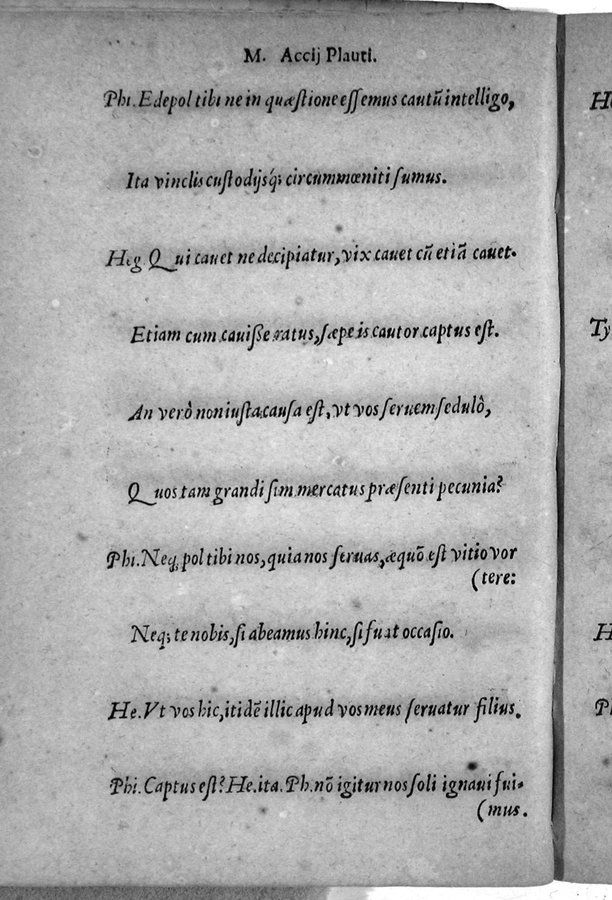 M. Accij Plauti.
Phi. Edepol tibi ne in quæstione essemus cautũ intelligo,
Ita vinclis custodijsq́; circummœniti sumus.
Heg. Qui cauet ne decipiatur, vix cauet cũ etiã cauet.
Etiam cum cauisse ratus, sæpe is cautor captus est.
An verò non iusta causa est, vt vos seruem sedulô,
Quos tam grandi sim mercatus præsenti pecunia?
Phi. Neq; pol tibi nos, quia nos seruas, æquõ est vitio vor
(tere:
Neq; te nobis, si abeamus hinc, si fuat occasio.
He. Vt vos hic, itidẽ illic apud vos meus seruatur filius.
Phi. Captus est? He. ita. Ph. nõ igitur nos soli ignaui fui-
(mus.
H
Ty
H
Pl